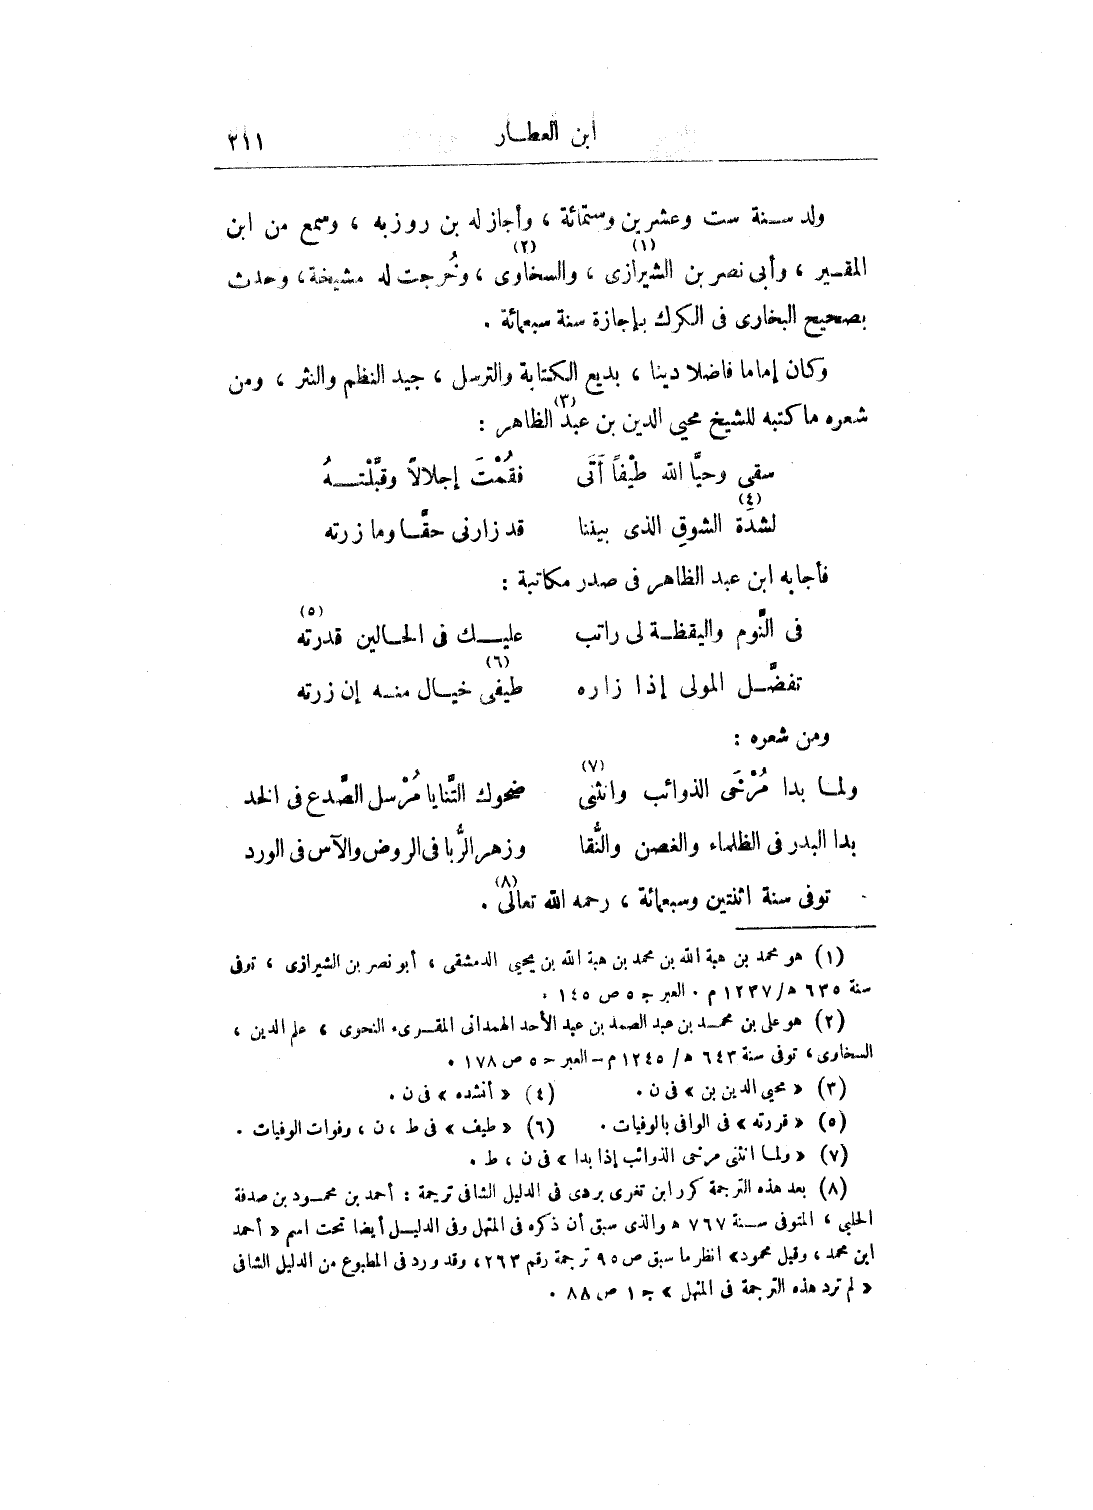 ابن العطار ٢١١
ولد سنة ست وعشرين وستمائة ، وأجاز له بن روزبه ، وسمع من ابن
المقير ، وأبى نصر بن الشيرازى (١) ، والسخاوى (٢) ، وخُرجت له مشيخة ، وحدث
بصحيح البخارى فى الكرك بإجازة سنة سبعمائة .
وكان إماما فاضلا دينا ، بديع الكتابة والترسل ، جيد النظم والنثر ، ومن
شعره ما كتبه للشيخ محيى الدين بن (٣) عبد الظاهر :
سقى وحيَّا الله طيْفاً أَتَى فقُمْتَ إجلالاً وقبَّلْتـــهُ
لشدَة (٤) الشوقِ الذى بيننا قد زارنى حقَّـا وما زرته
فأجابه ابن عبد الظاهر فى صدر مكاتبة :
فى النَّوم واليقظـة لى راتب عليــك فى الحـالين قدرته (٥)
تفضَّـل المولى إذا زاره طيفى (٦) خيـال منـه إن زرته
ومن شعره :
ولمـا بدا مُرْخَى الذوائب وانثنى (٧) ضحوك الثَّنايا مُرْسل الصَّدغ فى الخد
بدا البدر فى الظلماء والغصن والنَّقا وزهر الرُّبا فى الروض والآس فى الورد
توفى سنة اثنتين وسبعمائة ، رحمه الله تعالى (٨) .
(١) هو محمد بن هبة الله بن محمد بن هبة الله بن يحيى الدمشقى ، أبو نصر بن الشيرازى ، توفى
سنة ٦٣٥ ه/ ١٢٣٧ م . العبر ج ٥ ص ١٤٥ .
(٢) هو على بن محمـد بن عبد الصمد بن عبد الأحد الهمدانى المقـرىء النحوى ، علم الدين ،
السخاوى ، توفى سنة ٦٤٣ ه/ ١٢٤٥ م – العبر ج ٥ ص ١٧٨ .
(٣) « محيى الدين بن » فى ن . (٤) « أنشده » فى ن .
(٥) « قررته » فى الوافى بالوفيات . (٦) « طيف » فى ط ، ن ، وفوات الوفيات .
(٧) « ولمـا انثنى مرخى الذوائب إذا بدا » فى ن ، ط .
(٨) بعد هذه الترجمة كرر ابن تغرى بردى فى الدليل الشافى ترجمة : أحمد بن محمـود بن صدقة
الحلبى ، المتوفى سـنة ٧٦٧ ه والذى سبق أن ذكره فى المنهل وفى الدليـل أيضا تحت اسم « أحمد
ابن محمد ، وقيل محمود » انظر ما سبق ص ٩٥ ترجمة رقم ٢٦٣ ، وقد ورد فى المطبوع من الدليل الشافى
« لم ترد هذه الترجمة فى المنهل » ج ١ ص ٨٨ .